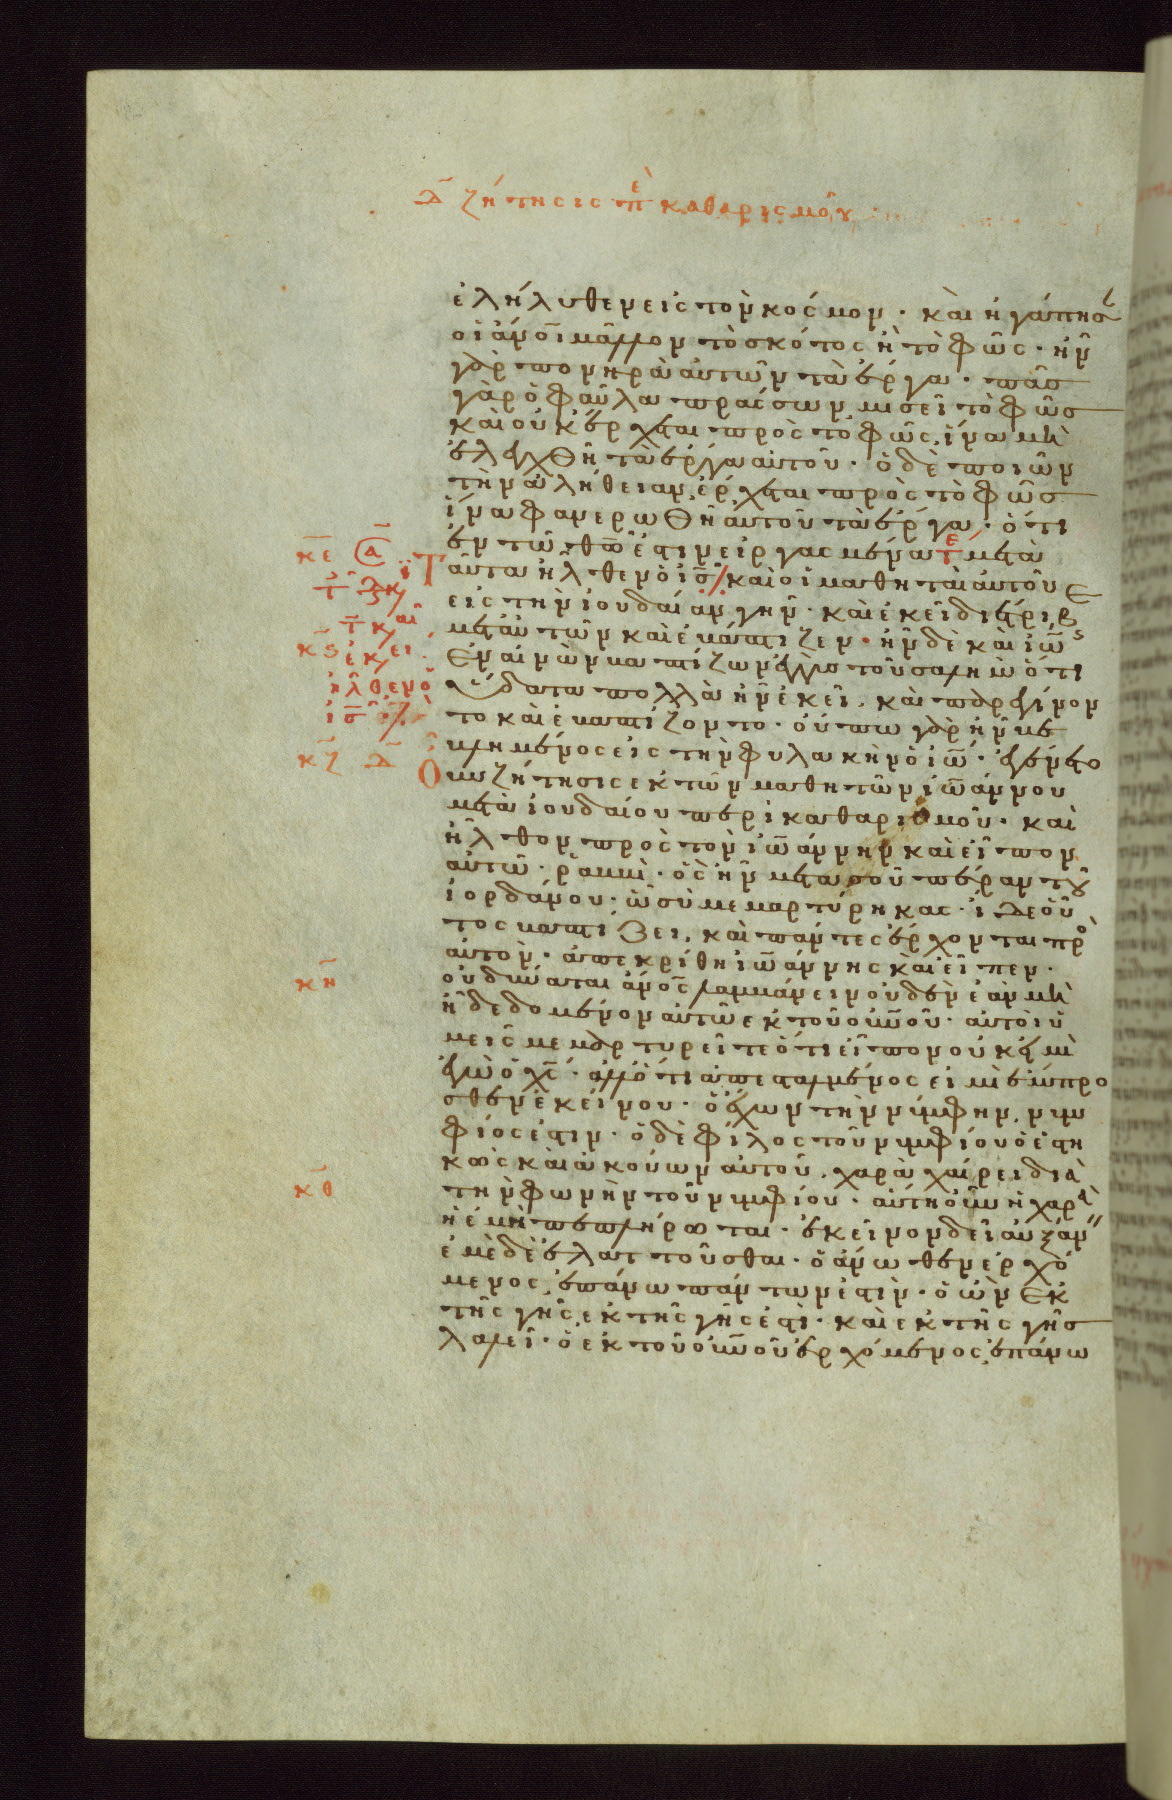 Δ ζήτησις π̅ε καθαρισμοῦ
ἐλήλυθεν εἰς τὸν κόσμον· καὶ ἠγάπησ
οἱ ἄνο̅ι μᾶλλον τὸ σκότος ἢ τὸ φῶς· ἦν
γὰρ πονηρὰ αὐτῶν τὰ ἔργα· πᾶσ
γὰρ ὁ φαῦλα πράσσων, μισεῖ τὸ φῶσ
καὶ οὐκ ἔρχεται πρὸς τὸ φῶς, ἵνα μὴ
ἐλεγχθῆ τὰ ἔργα αὐτοῦ· ὁ δὲ ποιῶν
τὴν ἀλήθειαν, ἔρχεται πρὸς τὸ φῶσ
ἵνα φανερωθῆ αὐτοῦ τὰ ἔργα· ὅτι
ἐν τῶ θω̅ ἐστιν εἰργασμένα τε μετὰ
κε̅ α̅ Ταῦτα ἦλθεν ὁ ις̅ καὶ οἱ μαθηταὶ αὐτοῦ
εἰς τὴν ἰουδαίαν γῆν· καὶ ἐκεῖ διέτριβε
μετ αὐτῶν καὶ ἐβάπτιζεν· ἦν δὲ καὶ ἰω̅ς
κς̅ ἐν αἰνὼν βαπτίζων ἐγγὺς τοῦ σαλὴμ ὅτι
ἦλθεν ὁ ὕδατα πολλὰ ἦν ἐκεῖ, καὶ παρεγίνον
ις̅ το καὶ ἐβαπτίζοντο· οὔπω γὰρ ἦν βε
κζ̅ Δ̅ βλημένος εἰς τὴν φυλακὴν ὁ ἰω̅· ἐγένετο
Οὖν ζήτησις ἐκ τῶν μαθητῶν ἰω̅άννου
μετὰ ἰουδαίου περὶ καθαρισμοῦ· καὶ
ἦλθον πρὸς τὸν ἰω̅άννην καὶ εἶπον
αὐτῶ· ῥαββὶ· ὃς ἦν μετὰ σοῦ πέραν τοῦ
ἰορδάνου· ὧ σὺ μεμαρτύρηκας· ἴδε οὗ
τος βαπτίζει, καὶ πάντες ἔρχονται πρὸ
αὐτόν· ἀπεκρίθη ἰω̅άννης καὶ εἶπεν·
κη̅ οὐ δύναται ἄνο̅ς λαμβάνειν οὐδὲν ἐὰν μὴ
ἦ δεδομένον αὐτῶ ἐκ τοῦ οὐν̅οῦ· αὐτοὶ ὑ
μεῖς μεμαρτυρεῖτε ὅτι εἶπον οὐκ εἰμὶ
ἐγὼ ὁ χς̅· ἀλλ ὅτι ἀπεσταλμένος εἰμὶ ἔμπρο
σθεν ἐκείνου· ὁ ἔχων τὴν νύμφην, νυμ
φίος ἐστιν· ὁ δὲ φίλος τοῦ νυμφίου ὁ ἑστη
κὼς καὶ ἀκούων αὐτοῦ, χαρὰ χαίρει διὰ
κθ̅ τὴν φωνὴν τοῦ νυμφίου· αὕτη οὖν ἡ χαρὰ
ἡ ἐμὴ πεπλήρωται· ἐκεῖνον δεῖ αὐξάν
ἐμὲ δὲ ἐλαττοῦσθαι· ὁ ἄνωθεν ἐρχό
μενος, ἐπάνω πάντων ἐστίν· ὁ ὢν ἐκ
τῆς γῆς, ἐκ τῆς γῆς ἐστι· καὶ ἐκ τῆς γῆσ
λαλεῖ· ὁ ἐκ τοῦ οὐν̅οῦ ἐρχόμενος, ἐπάνω